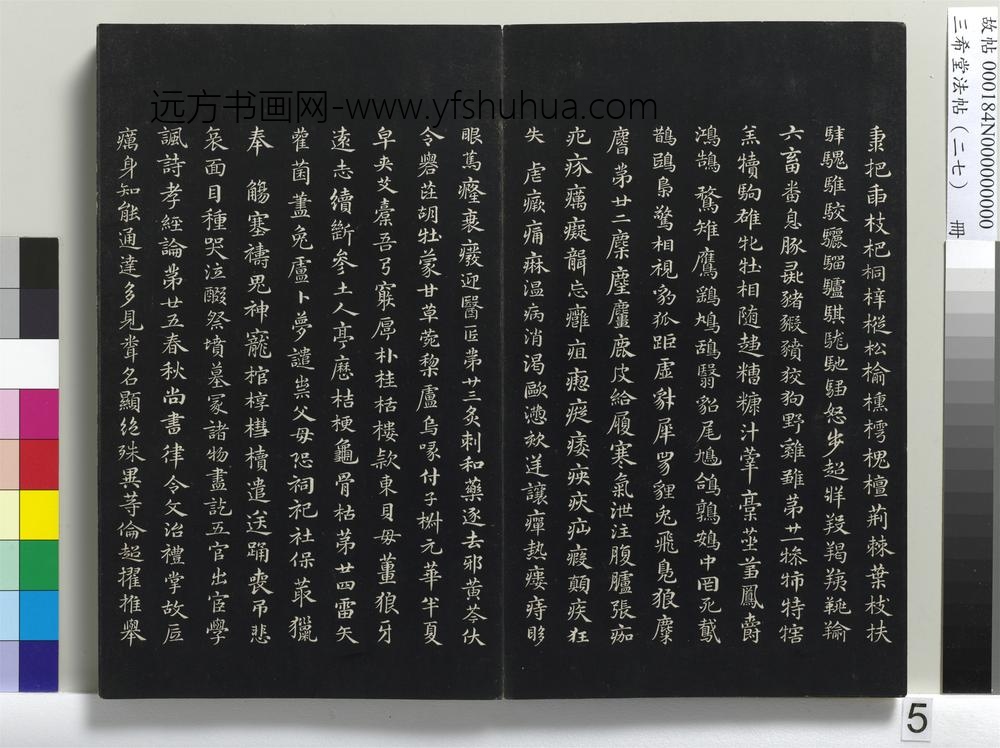 棗把臿枝杷桐梓樅松榆櫄樗槐檀荊棘葉枝扶
騂騩騅駮驪騮驢騏駹馳驅怒步超牂羖羯羠羝羭
六畜番息豚彘豬豭豶狡狗野雞雛苐廿一犙犕特犗
羔犢駒雄牝牡相随趨糟糠汁莘稾莝蒭鳳爵
鴻鵠鶩雉鷹鷂鳩鴰翳貂尾鳩鴿鶉鴳中罔死鳶
鵲鴟梟驚相視豹狐距虛豺犀兕貍兔飛鳧狼麋
麿苐廿二麇麈麠麀皮給履寒氣泄注腹臚張痂
疕疥癘癡聾忘癰疽瘛瘲痿痹疾疝瘕顛疾狂
失虐瘚痛痳温病消渴歐懣欬逆讓癉熱瘻痔眵
眼篤癃衰癈迎醫匠苐廿三灸刺和藥逐去邪黃芩伏
令礜茈胡牡蒙甘草菀棃盧烏喙付子椒元華半夏
皁莢艾橐吾弓窮厚朴桂栝樓款東貝母薑狼牙
遠志續斷參土人亭歷桔梗龜骨枯苐廿四雷矢
雚菌藎兔盧卜夢譴祟父母恐祠祀社保叢獵
奉觴塞禱鬼神寵棺椁槥櫝遣送踊喪吊悲
哀面目種哭泣醊祭墳墓冢諸物盡訖五官出宦學
諷詩孝經論苐廿五春秋尚書律令文治禮掌故底
癘身知能通達多見聞名顯絕殊異等倫超擢推舉
远方书画网-www.yfshuhua.com
故帖 000184N000000000
三希堂法帖（二七） 冊
5